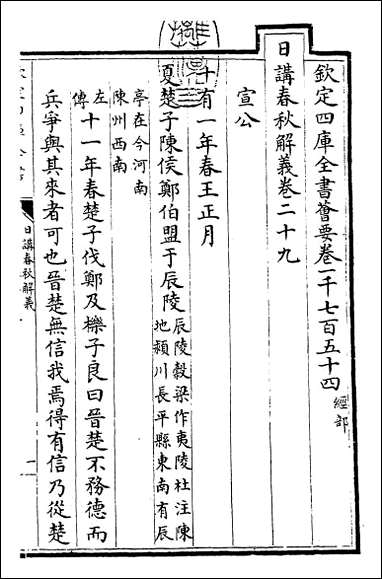 欽定四庫全書薈要卷一千七百五十四 經部
日講春秋解義卷二十九
宣公
十有一年春王正月
夏楚子陳侯鄭伯盟于辰陵 辰陵穀梁作夷陵杜注陳地潁川長平縣東南有辰
亭在今河南陳州西南
左傳 十一年春楚子伐鄭及櫟子良曰晉楚不務德而
兵爭與其來者可也晉楚無信我焉得有信乃從楚
日講春秋解義
一